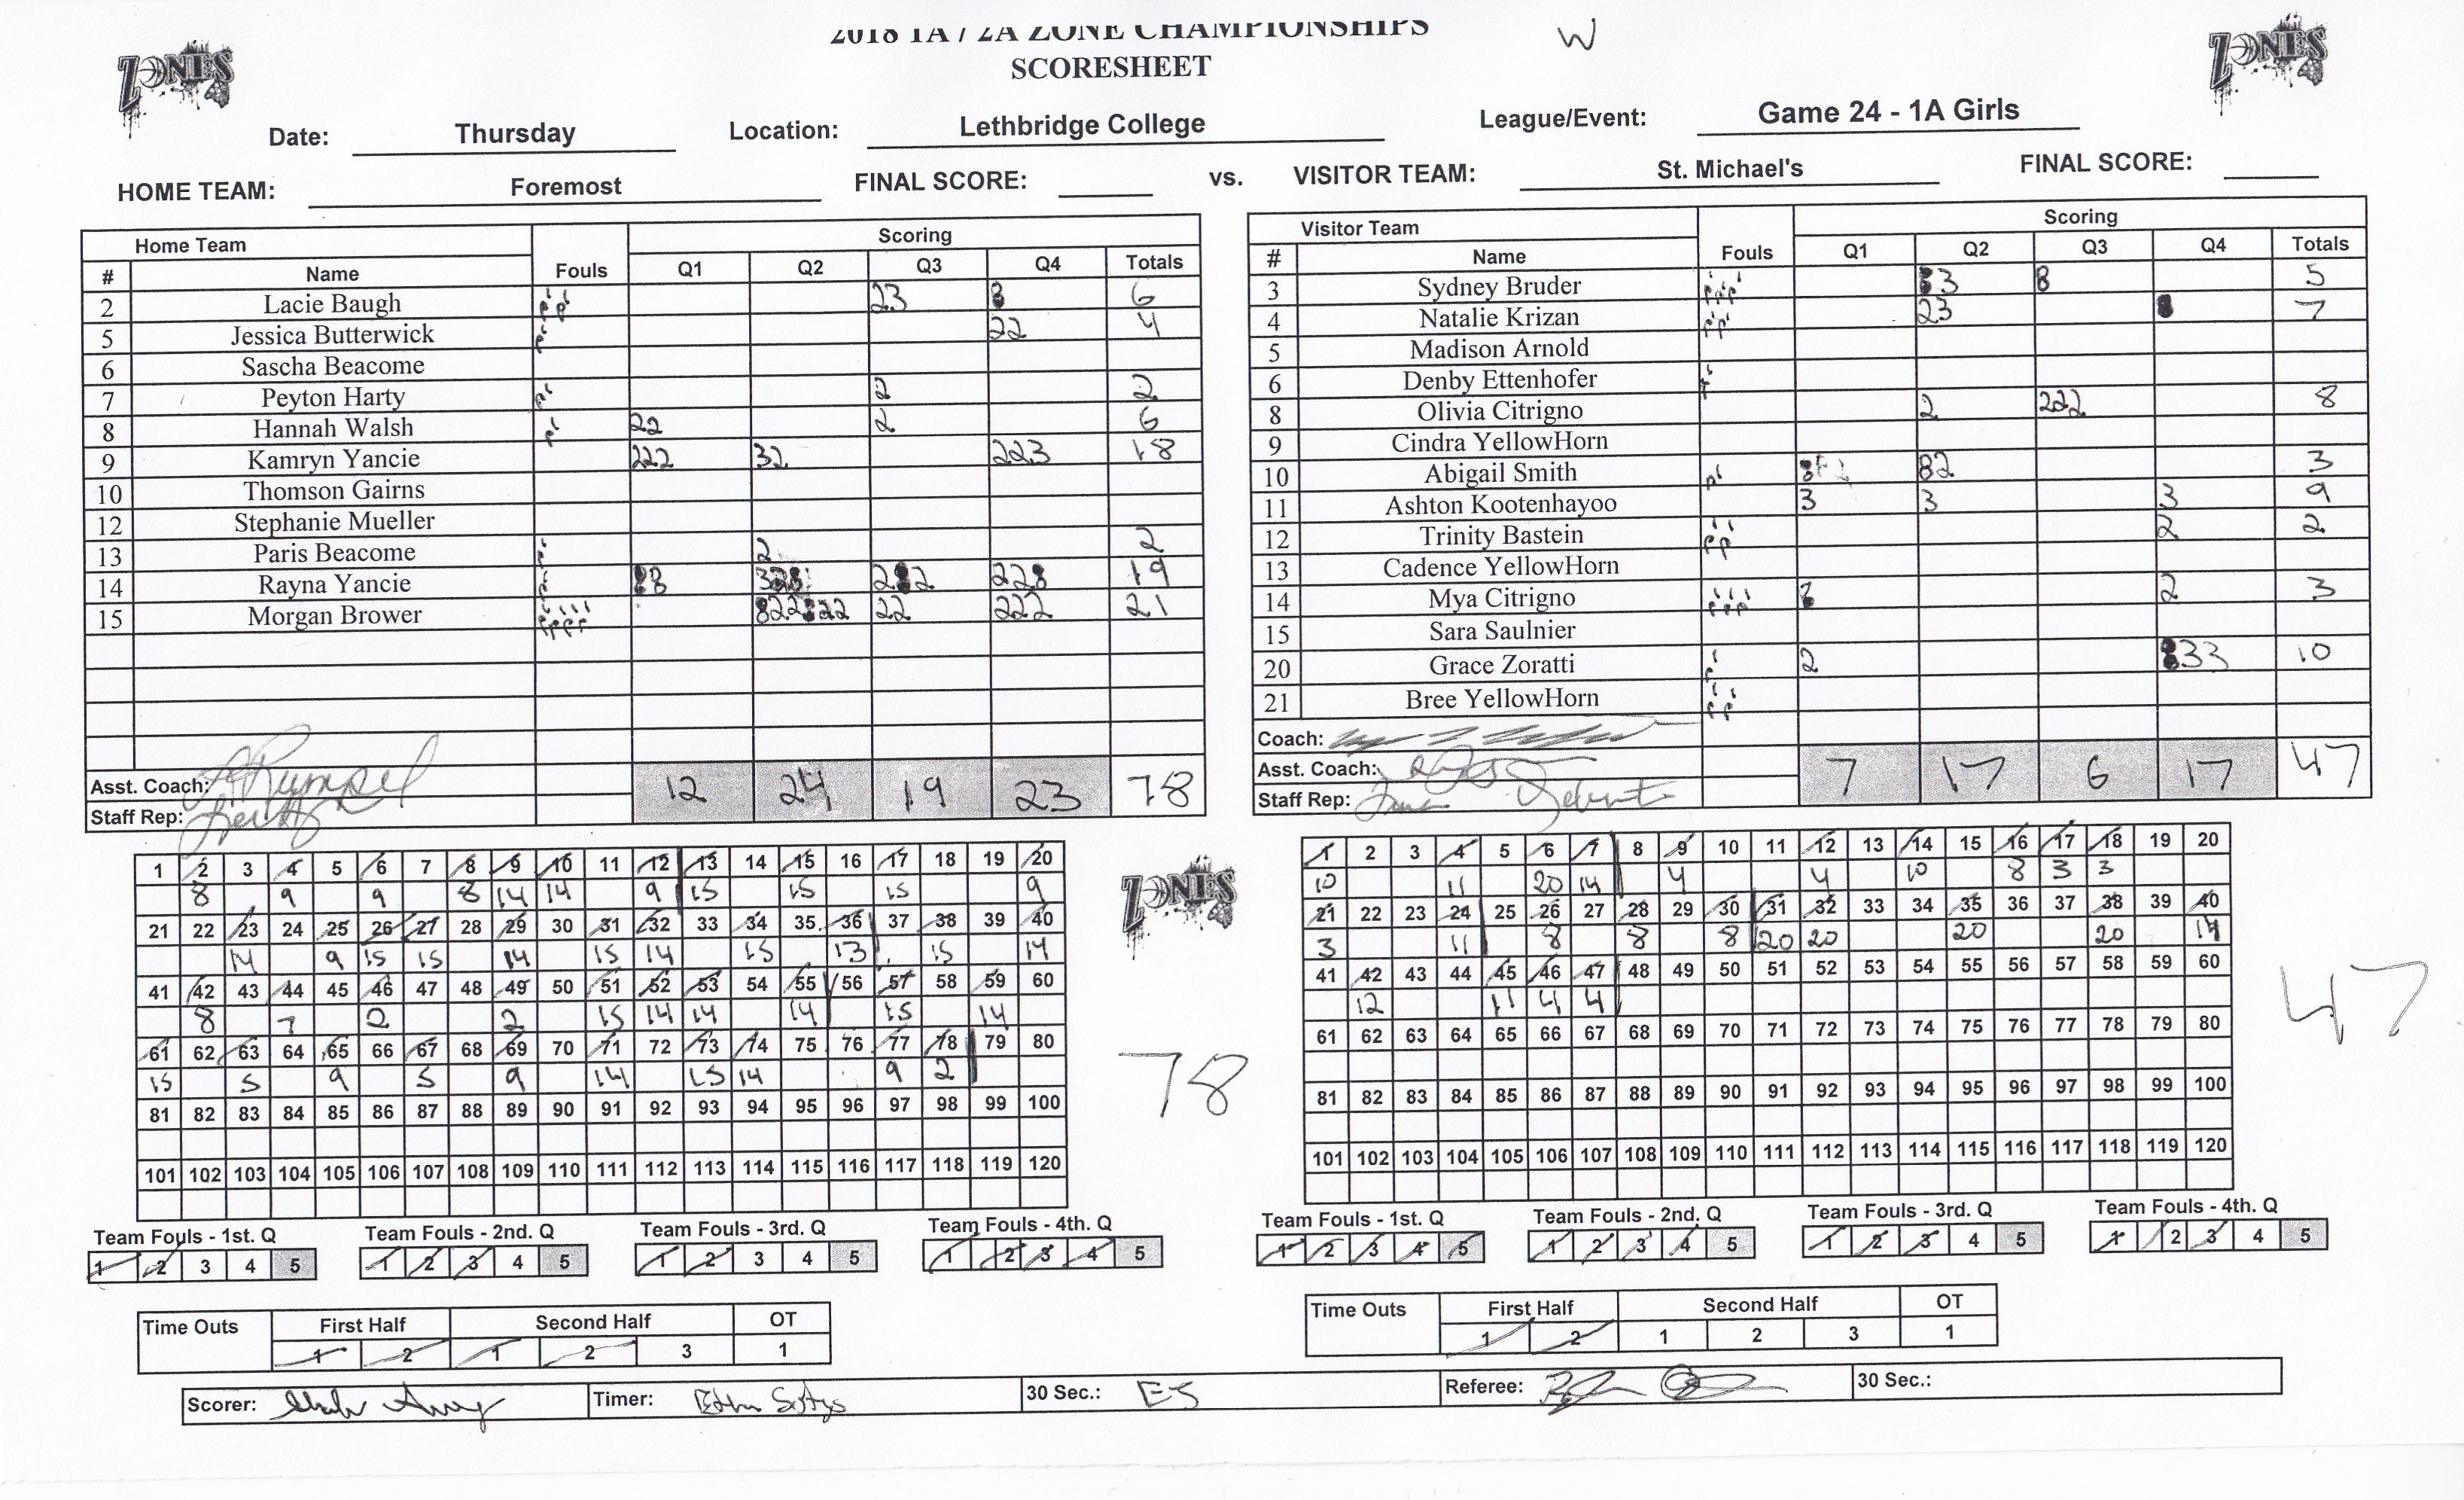 2018 1A / 2A ZONE CHAMPIONSHIPS
W
SCORESHEET
ZONES
ZONES
Date: Thursday Location: Lethbridge College League/Event: Game 24 - 1A Girls
HOME TEAM: Foremost FINAL SCORE: vs. VISITOR TEAM: St. Michael's FINAL SCORE:
Home Team Scoring
# Name Fouls Q1 Q2 Q3 Q4 Totals
2 Lacie Baugh 23 6
5 Jessica Butterwick 22 4
6 Sascha Beacome
7 Peyton Harty 2 2
8 Hannah Walsh 22 2 6
9 Kamryn Yancie 222 32 223 18
10 Thomson Gairns
12 Stephanie Mueller
13 Paris Beacome 2 2
14 Rayna Yancie 19
15 Morgan Brower 22 222 21
Asst. Coach:
Staff Rep:
12 24 19 23 78
Visitor Team Scoring
# Name Fouls Q1 Q2 Q3 Q4 Totals
3 Sydney Bruder 3 5
4 Natalie Krizan 23 7
5 Madison Arnold
6 Denby Ettenhofer
8 Olivia Citrigno 2 222 8
9 Cindra YellowHorn
10 Abigail Smith 3
11 Ashton Kootenhayoo 3 3 3 9
12 Trinity Bastein 2 2
13 Cadence YellowHorn
14 Mya Citrigno 2 3
15 Sara Saulnier
20 Grace Zoratti 2 33 10
21 Bree YellowHorn
Coach:
Asst. Coach:
Staff Rep:
7 17 6 17 47
1 2 3 4 5 6 7 8 9 10 11 12 13 14 15 16 17 18 19 20
8 9 9 8 14 14 9 15 15 15 9
21 22 23 24 25 26 27 28 29 30 31 32 33 34 35 36 37 38 39 40
14 9 15 15 14 15 14 15 13 15 14
41 42 43 44 45 46 47 48 49 50 51 52 53 54 55 56 57 58 59 60
8 7 2 2 15 14 14 14 15 14
61 62 63 64 65 66 67 68 69 70 71 72 73 74 75 76 77 78 79 80
15 5 9 5 9 14 15 14 9 2
81 82 83 84 85 86 87 88 89 90 91 92 93 94 95 96 97 98 99 100
101 102 103 104 105 106 107 108 109 110 111 112 113 114 115 116 117 118 119 120
ZONES
78
1 2 3 4 5 6 7 8 9 10 11 12 13 14 15 16 17 18 19 20
10 11 20 14 4 4 10 8 3 3
21 22 23 24 25 26 27 28 29 30 31 32 33 34 35 36 37 38 39 40
3 11 8 8 8 20 20 20 20 14
41 42 43 44 45 46 47 48 49 50 51 52 53 54 55 56 57 58 59 60
12 11 4 4
61 62 63 64 65 66 67 68 69 70 71 72 73 74 75 76 77 78 79 80
81 82 83 84 85 86 87 88 89 90 91 92 93 94 95 96 97 98 99 100
101 102 103 104 105 106 107 108 109 110 111 112 113 114 115 116 117 118 119 120
47
Team Fouls - 1st. Q Team Fouls - 2nd. Q Team Fouls - 3rd. Q Team Fouls - 4th. Q
1 2 3 4 5 1 2 3 4 5 1 2 3 4 5 1 2 3 4 5
Team Fouls - 1st. Q Team Fouls - 2nd. Q Team Fouls - 3rd. Q Team Fouls - 4th. Q
1 2 3 4 5 1 2 3 4 5 1 2 3 4 5 1 2 3 4 5
Time Outs First Half Second Half OT
1 2 1 2 3 1
Time Outs First Half Second Half OT
1 2 1 2 3 1
Scorer: Timer: 30 Sec.: ES Referee: 30 Sec.: